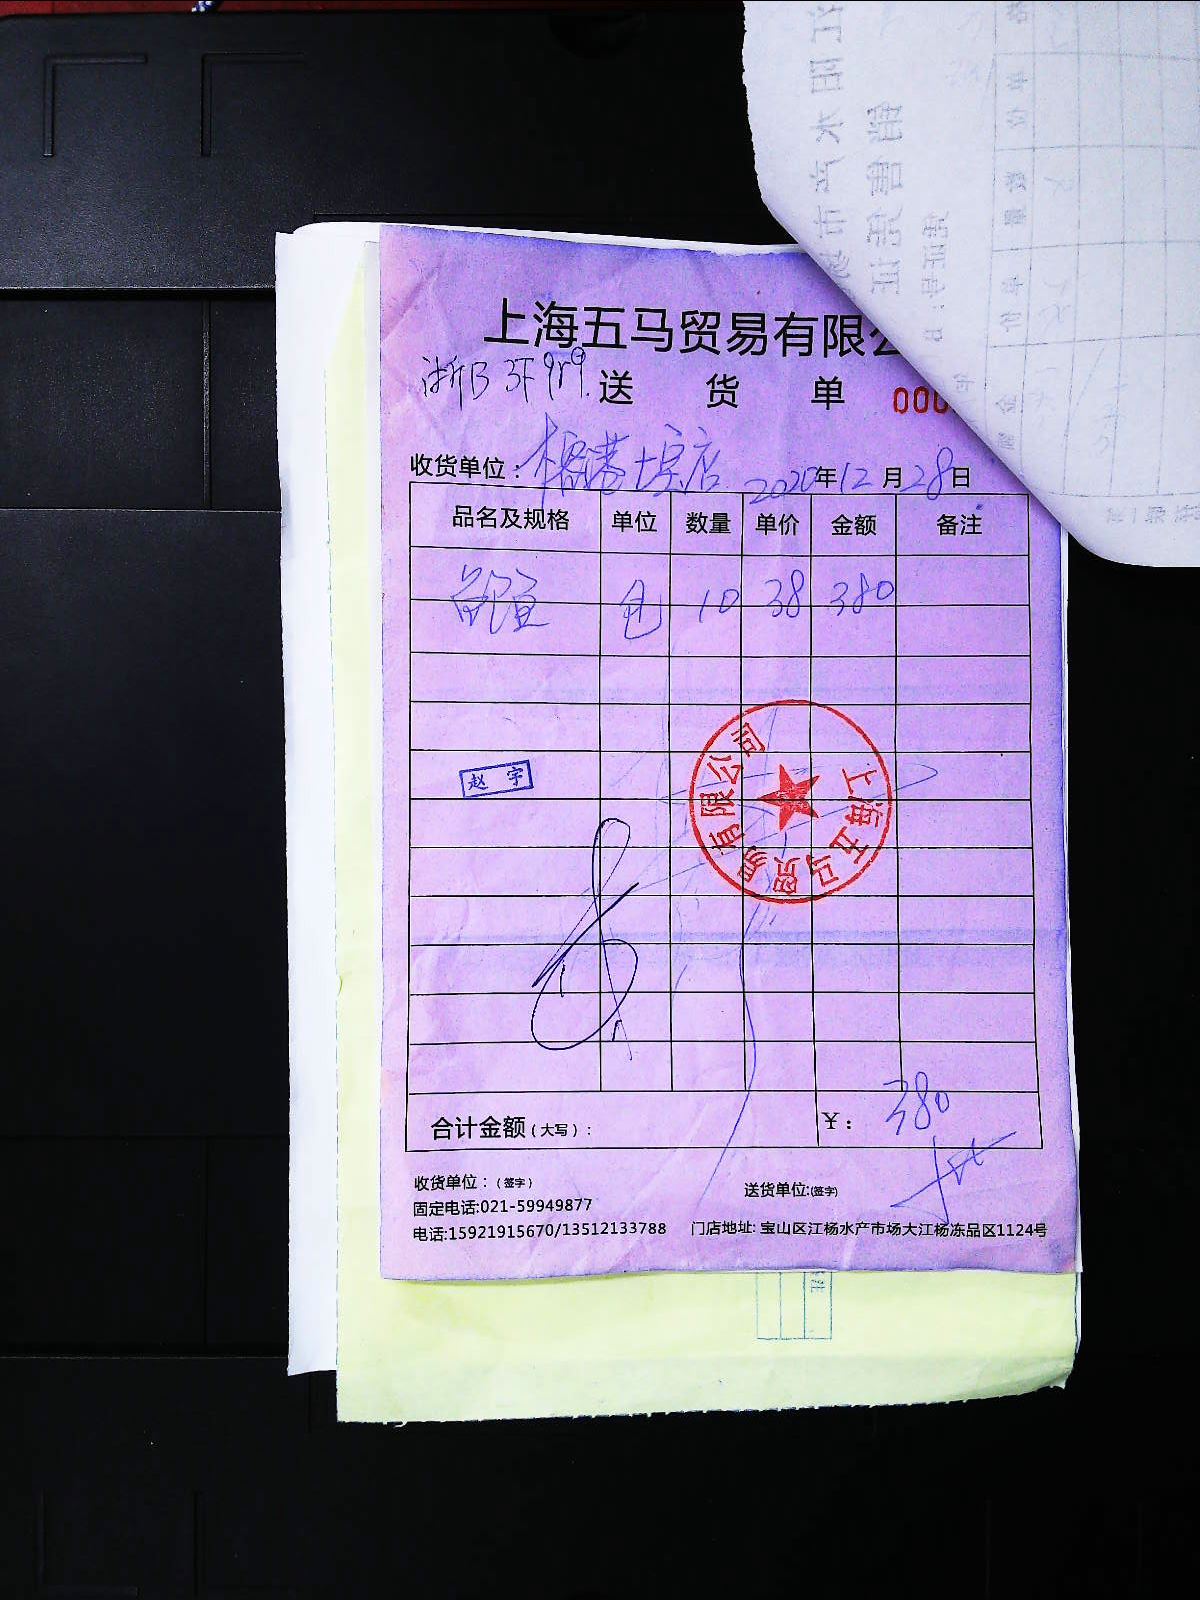 上海五马贸易有限公
浙B 3F9r9
送 货 单
000
收货单位：
2020年12月28日
品名及规格 单位 数量 单价 金额 备注
包 10 38 380
上海五马贸易有限公司
赵 宇
合计金额（大写）： ¥： 380
收货单位：（签字） 送货单位:(签字)
固定电话:021-59949877
电话:15921915670/13512133788 门店地址: 宝山区江杨水产市场大江杨冻品区1124号